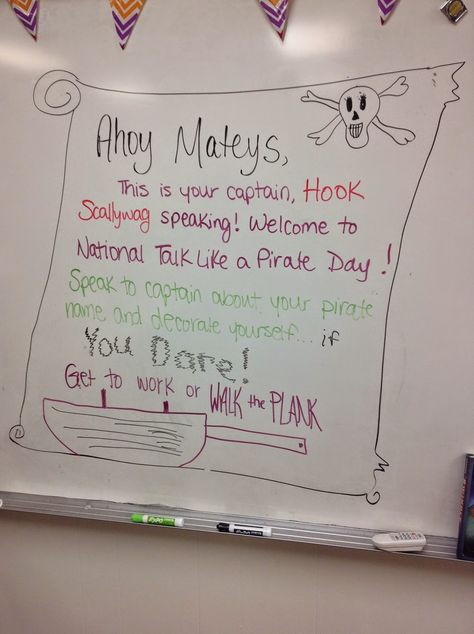 Ahoy Mateys,
This is your captain, Hook
Scallywag speaking! Welcome to
National Talk Like a Pirate Day!
Speak to captain about your pirate
name and decorate yourself... if
You Dare!
Get to work or WALK the PLANK